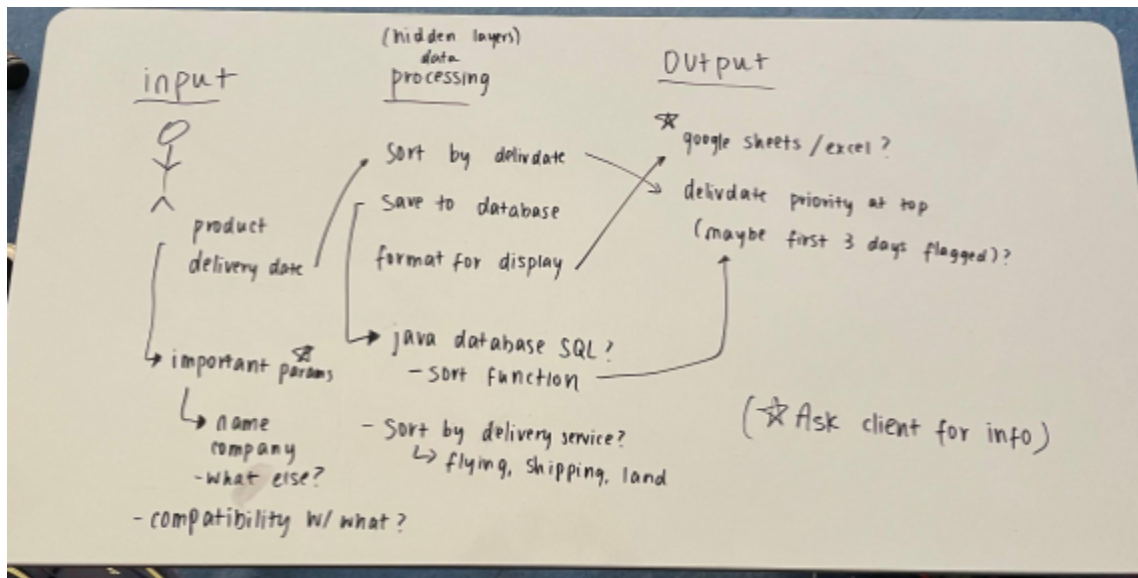 input
product
delivery date
important params
name
company
- what else?
- compatibility w/ what?
(hidden layers)
data
processing
sort by delivdate
save to database
format for display
java database SQL?
- sort function
- sort by delivery service?
flying, shipping, land
Output
google sheets / excel?
delivdate priority at top
(maybe first 3 days flagged)?
(☆ Ask client for info)